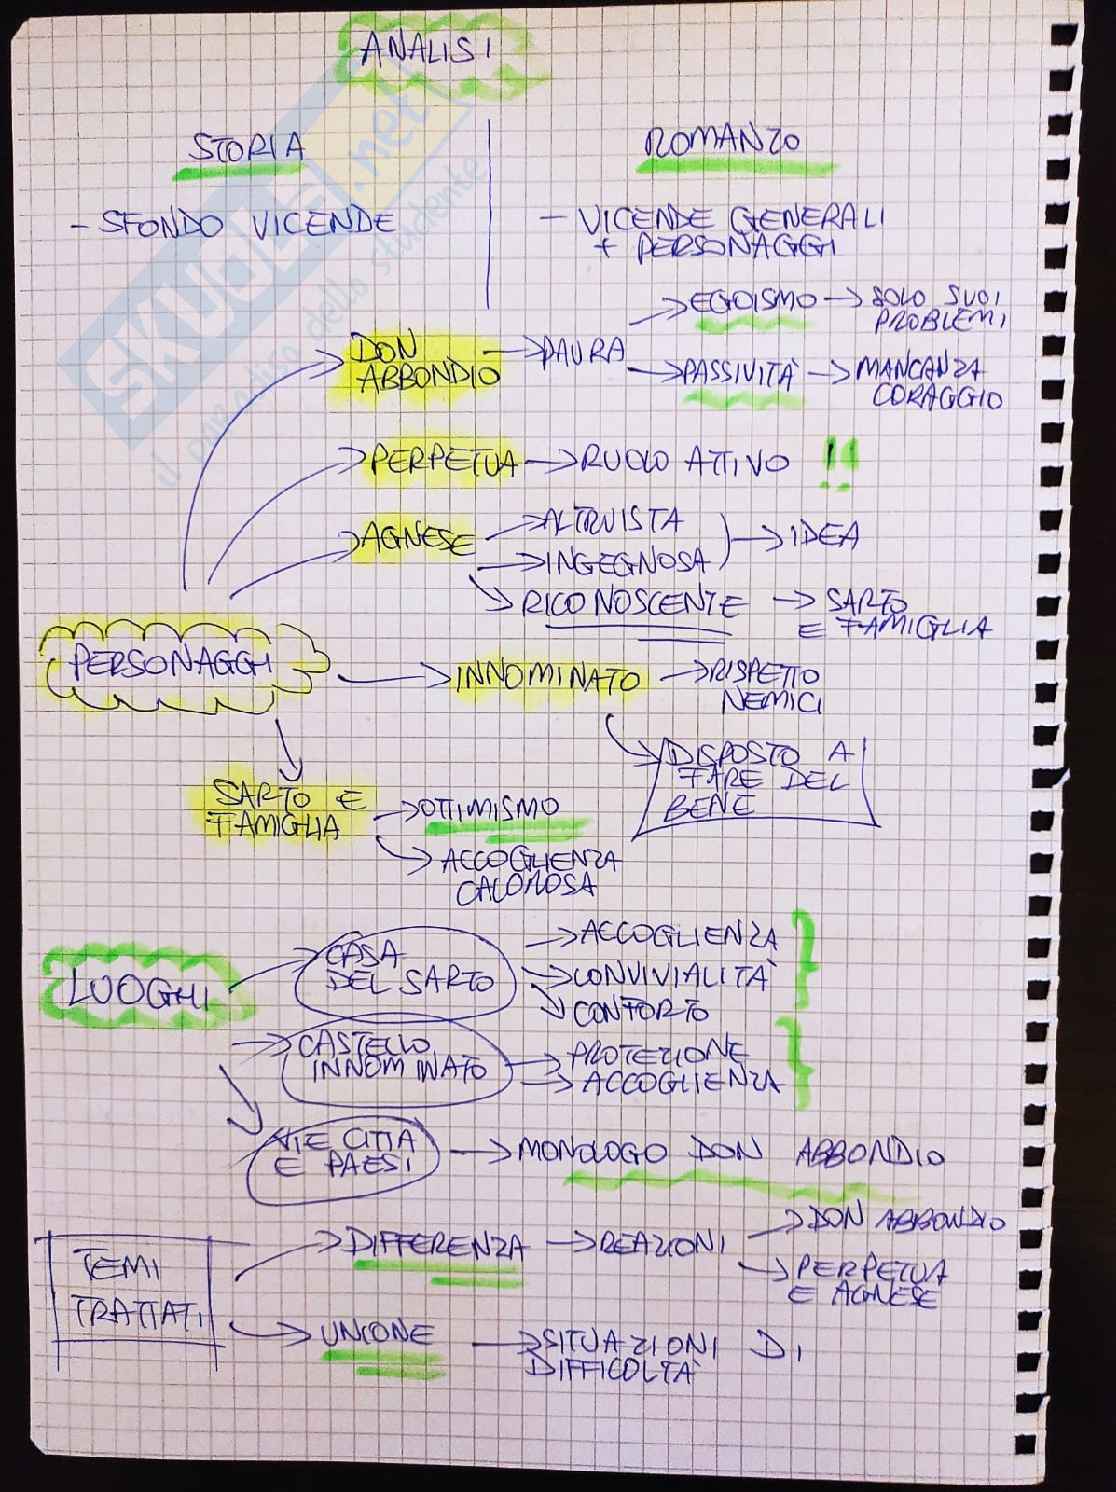 ANALISI
STORIA
ROMANZO
- SFONDO VICENDE
- VICENDE GENERALI
+ PERSONAGGI
DON
ABBONDIO
PAURA
EGOISMO
SOLO SUOI
PROBLEMI
PASSIVITÀ
MANCANZA
CORAGGIO
PERPETUA
RUOLO ATTIVO !!
AGNESE
ALTRUISTA
INGEGNOSA
IDEA
RICONOSCENTE
SARTO
E FAMIGLIA
PERSONAGGI
INNOMINATO
RISPETTO
NEMICI
DISPOSTO A
FARE DEL
BENE
SARTO E
FAMIGLIA
OTTIMISMO
ACCOGLIENZA
CALOROSA
LUOGHI
CASA
DEL SARTO
ACCOGLIENZA
CONVIVIALITÀ
CONFORTO
CASTELLO
INNOMINATO
PROTEZIONE
ACCOGLIENZA
VIE CITTA
E PAESI
MONOLOGO DON ABBONDIO
TEMI
TRATTATI
DIFFERENZA
REAZIONI
DON ABBONDIO
PERPETUA
E AGNESE
UNIONE
SITUAZIONI DI
DIFFICOLTÀ
SKUOLA.net
il paradiso dello studente